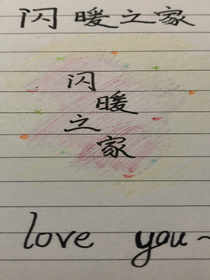 闪暖之家
闪
暖
之
家
love you~